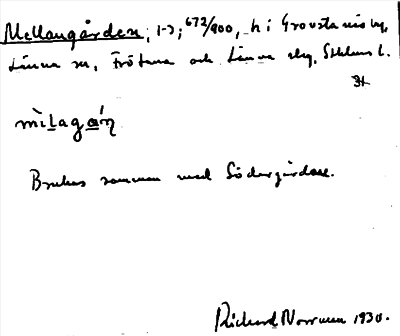 Mellangården, 1-3; 672/900, h i Grovsta by,
Länna sn, Frötuna och Länna skg, Sthlms l.
St
mìlagán
Brukas samman med Södergården.
Richard Norrman 1930.